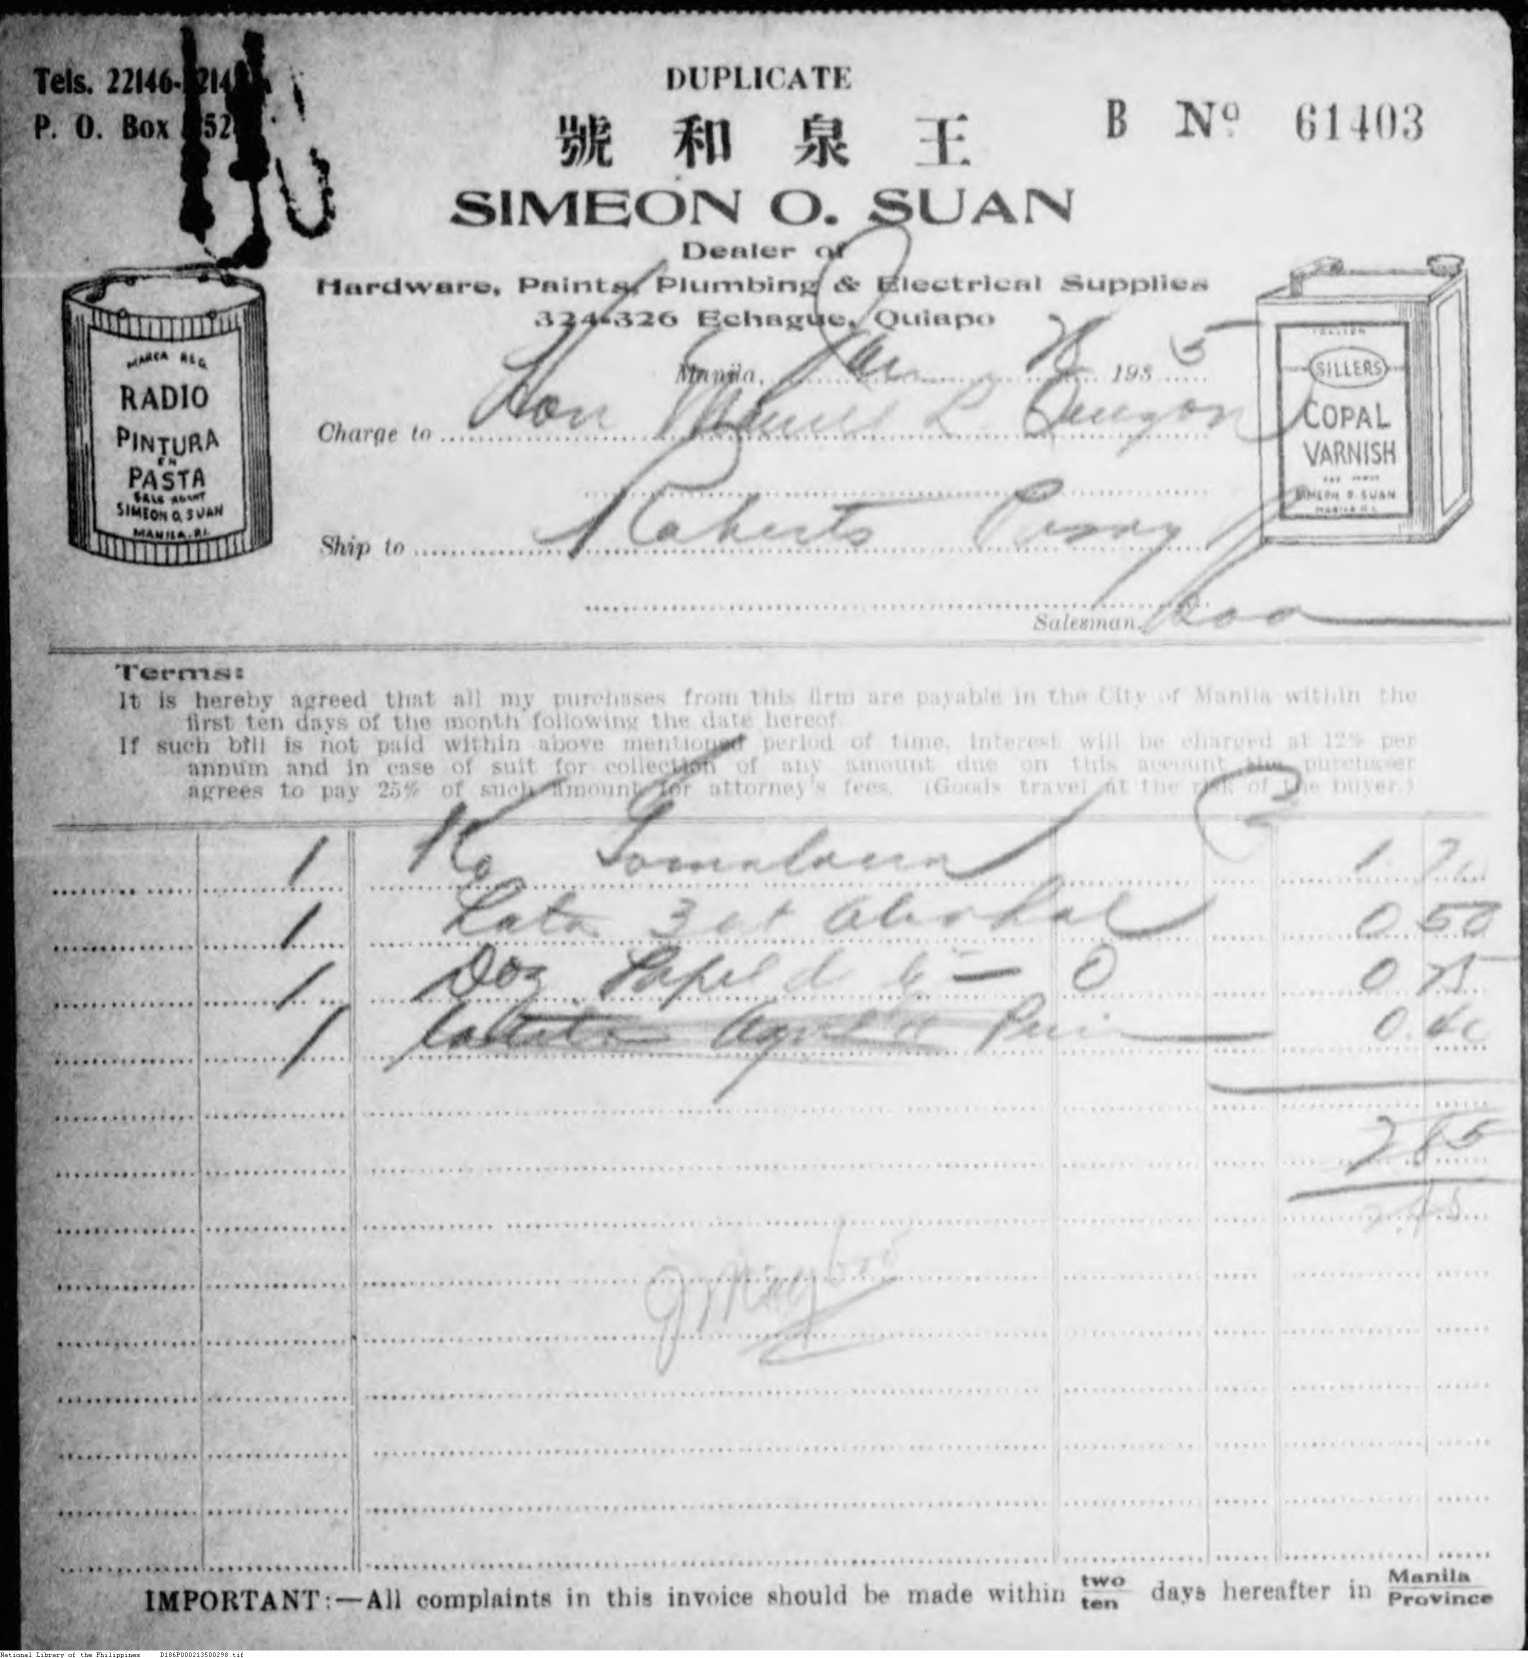 Tels. 22146-
P. O. Box
DUPLICATE
B No 61403
號和泉王
SIMEON O. SUAN
Dealer of
Hardware, Paints, Plumbing & Electrical Supplies
324-326 Echague, Quiapo
Manila, Jan 193 5
Charge to Hon Manuel L. Quezon
Ship to Roberts Pasay
Salesman
MARCA REG
RADIO
PINTURA
EN
PASTA
SALE AGENT
SIMEON O. SUAN
MANILA. P.I.
SILLERS
COPAL
VARNISH
SIMEON O. SUAN
MANILA P.I.
Terms:
It is hereby agreed that all my purchases from this firm are payable in the City of Manila within the
first ten days of the month following the date hereof.
If such bill is not paid within above mentioned period of time, interest will be charged at 12% per
annum and in case of suit for collection of any amount due on this account the purchaser
agrees to pay 25% of such amount for attorney's fees. (Goods travel at the risk of the buyer.)
1 Ko Gomalaca 1.20
1 Lata Alcohol 0 50
1 Doz Papel de lija — 0 0 75
1 0.40
2.85
2.45
IMPORTANT:—All complaints in this invoice should be made within two/ten days hereafter in Manila/Province
National Library of the Philippines D186P000213500298.tif